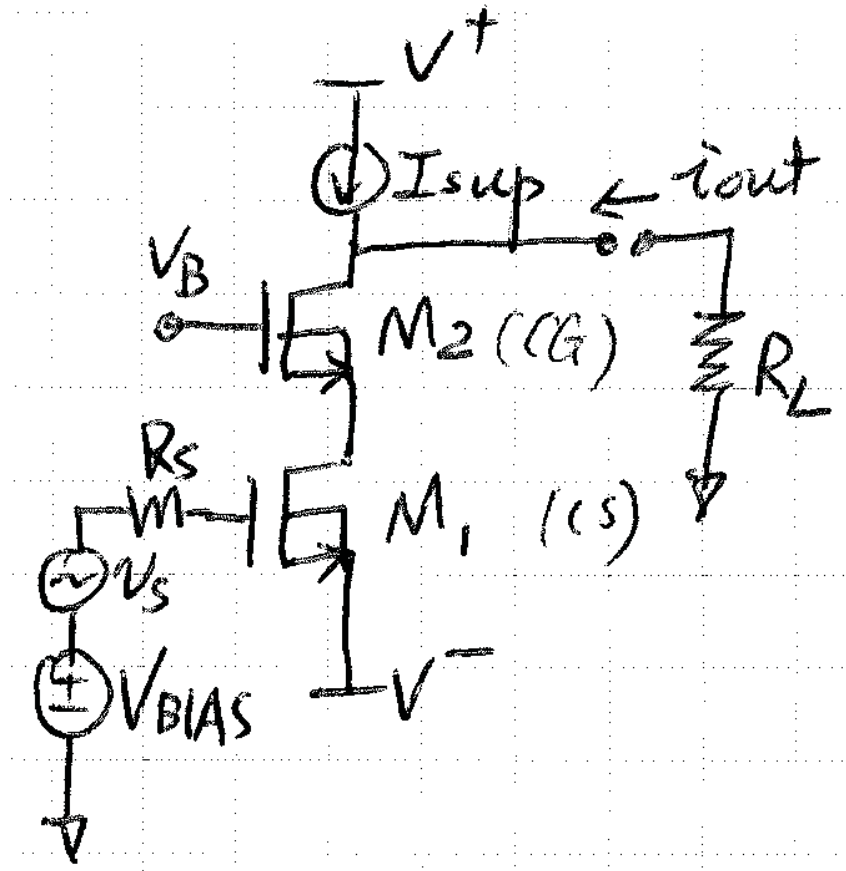 V+
Isup
iout
VB
M2 (CG)
RL
Rs
M1 (CS)
vs
VBIAS
V−